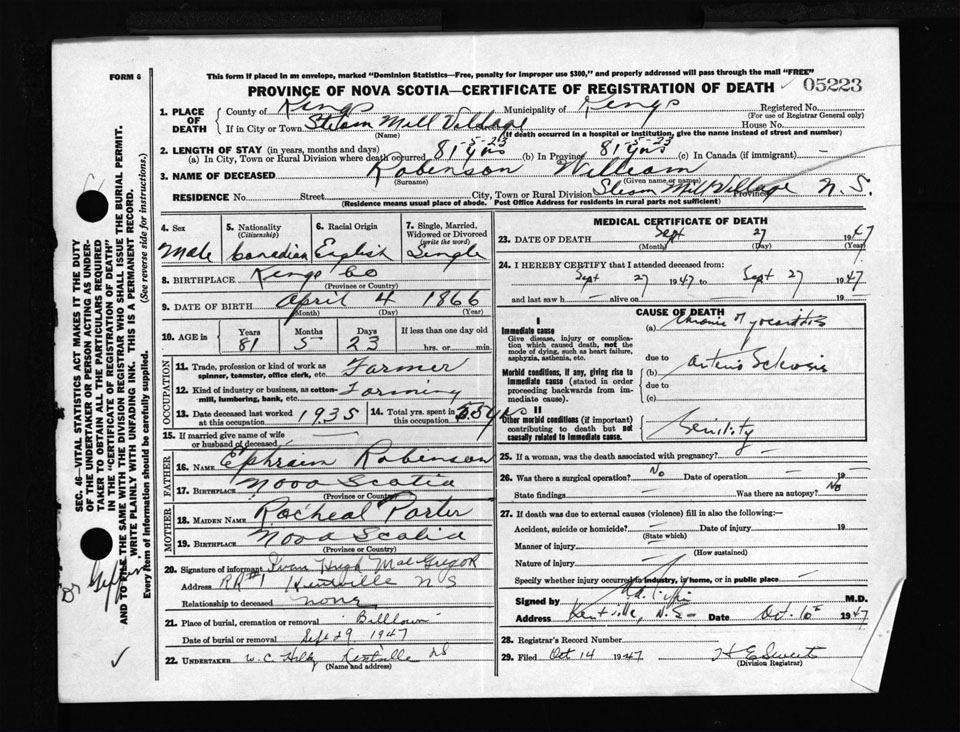 FORM 6
This form if placed in an envelope, marked "Dominion Statistics—Free, penalty for improper use $300," and properly addressed will pass through the mail "FREE"
PROVINCE OF NOVA SCOTIA—CERTIFICATE OF REGISTRATION OF DEATH 05223
1. PLACE OF DEATH County of Kings Municipality of Kings Registered No.
(For use of Registrar General only)
If in City or Town Steam Mill Village Street House No.
(Name) (If death occurred in a hospital or institution, give the name instead of street and number)
2. LENGTH OF STAY (in years, months and days)
(a) In City, Town or Rural Division where death occurred 81 yrs 5-23 (b) In Province 81 yrs 5-23 (c) In Canada (if immigrant) —
3. NAME OF DECEASED Robinson William
(Surname) (Given name or names)
RESIDENCE No. Street City, Town or Rural Division Steam Mill Village Province N.S.
(Residence means usual place of abode. Post Office Address for residents in rural parts not sufficient)
4. Sex Male
5. Nationality (Citizenship) Canadian
6. Racial Origin English
7. Single, Married, Widowed or Divorced (write the word) Single
8. BIRTHPLACE Kings Co
(Province or Country)
9. DATE OF BIRTH April 4 1866
(Month) (Day) (Year)
10. AGE in Years 81 Months 5 Days 23 If less than one day old hrs. or min.
OCCUPATION
11. Trade, profession or kind of work as spinner, teamster, office clerk, etc. Farmer
12. Kind of industry or business, as cotton-mill, lumbering, bank, etc. Farming
13. Date deceased last worked at this occupation 1935 14. Total yrs. spent in this occupation 55 yrs
15. If married give name of wife or husband of deceased —
FATHER
16. NAME Ephraim Robinson
17. BIRTHPLACE Nova Scotia
(Province or Country)
MOTHER
18. MAIDEN NAME Racheal Porter
19. BIRTHPLACE Nova Scotia
(Province or Country)
20. Signature of informant Ivan Hugh MacGregor
Address RR#1 Kentville N S
Relationship to deceased none
21. Place of burial, cremation or removal Billtown
Date of burial or removal Sept 29 1947
22. UNDERTAKER W.C. Kentville NS
(Name and address)
MEDICAL CERTIFICATE OF DEATH
23. DATE OF DEATH Sept 27 1947
(Month) (Day) (Year)
24. I HEREBY CERTIFY that I attended deceased from:
Sept 27 1947 to Sept 27 1947
and last saw h alive on 19
CAUSE OF DEATH
I
Immediate cause
Give disease, injury or complication which caused death, not the mode of dying, such as heart failure, asphyxia, asthenia, etc.
(a) Chronic Myocarditis
due to
Morbid conditions, if any, giving rise to immediate cause (stated in order proceeding backwards from immediate cause).
(b) Arterio Sclerosis
due to
(c)
II
Other morbid conditions (if important) contributing to death but not causally related to immediate cause.
Senility
25. If a woman, was the death associated with pregnancy? —
26. Was there a surgical operation? No Date of operation — 19
State findings — Was there an autopsy? No
27. If death was due to external causes (violence) fill in also the following:—
Accident, suicide or homicide? — Date of injury 19
(State which)
Manner of injury —
(How sustained)
Nature of injury —
Specify whether injury occurred in industry, in home, or in public place —
Signed by M.D.
Address Kentville, N.S. Date Oct. 10 1947
28. Registrar's Record Number
29. Filed Oct 14 1947 H E Sweet
(Division Registrar)
SEC. 46—VITAL STATISTICS ACT MAKES IT THE DUTY
OF THE UNDERTAKER OR PERSON ACTING AS UNDERTAKER TO OBTAIN ALL THE PARTICULARS REQUIRED
IN THE "CERTIFICATE OF REGISTRATION OF DEATH"
AND TO FILE THE SAME WITH THE DIVISION REGISTRAR WHO SHALL ISSUE THE BURIAL PERMIT.
WRITE PLAINLY WITH UNFADING INK. THIS IS A PERMANENT RECORD.
Every item of information should be carefully supplied. (See reverse side for instructions.)